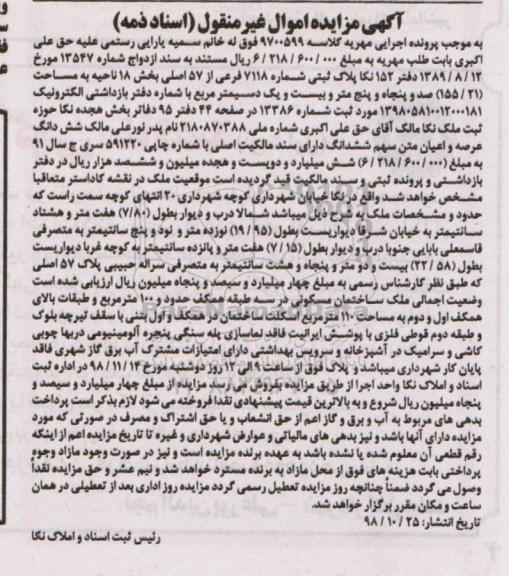 آگهی مزایده اموال غیرمنقول (اسناد ذمه)
به موجب پرونده اجرایی مهریه کلاسه ۹۷۰۰۵۹۹ فوق له خانم سمیه یارایی رستمی علیه حق علی
اکبری بابت طلب مهریه به مبلغ ۰۰۰/ ۶۰۰/ ۲۱۸ /۶ ریال مستند به سند ازدواج شماره ۱۳۵۴۷ مورخ
۱۲ / ۸ / ۱۳۸۹ دفتر ۱۵۲ نکا پلاک ثبتی شماره ۷۱۱۸ فرعی از ۵۷ اصلی بخش ۱۸ ناحیه به مساحت
(۲۱ /۱۵۵) صد و پنجاه و پنج متر و بیست و یک دسیمتر مربع با شماره دفتر بازداشتی الکترونیک
۱۳۹۸۰۵۸۱۰۰۱۲۰۰۰۱۸۱ مورد ثبت شماره ۱۳۳۸۶ در صفحه ۴۴ دفتر ۹۵ دفاتر بخش هجده نکا حوزه
ثبت ملک نکا مالک آقای حق علی اکبری شماره ملی ۲۱۸۰۸۷۰۳۸۸ نام پدر نورعلی مالک شش دانگ
عرصه و اعیان متن سهم ششدانگ دارای سند مالکیت اصلی با شماره چاپی ۵۹۱۲۲۰ سری ج سال ۹۱
به مبلغ (۰۰۰/ ۶۰۰ /۲۱۸ /۶) شش میلیارد و دویست و هجده میلیون و ششصد هزار ریال در دفتر
بازداشتی و پرونده ثبتی و سند مالکیت قید گردیده است موقعیت ملک در نقشه کاداستر متعاقبا
مشخص خواهد شد واقع در نکا خیابان شهرداری کوچه شهرداری ۲۰ انتهای کوچه سمت راست که
حدود و مشخصات ملک به شرح ذیل میباشد شمالا درب و دیوار بطول (۷/۸۰) هفت متر و هشتاد
سانتیمتر به خیابان شرقا دیواریست بطول (۹۵ /۱۹) نوزده متر و نود و پنج سانتیمتر به متصرفی
قاسمعلی بابایی جنوبا درب و دیوار بطول (۱۵ /۷) هفت متر و پانزده سانتیمتر به کوچه غربا دیواریست
بطول (۵۸ /۲۲) بیست و دو متر و پنجاه و هشت سانتیمتر به متصرفی سراله حبیبی پلاک ۵۷ اصلی
که طبق نظر کارشناس رسمی به مبلغ چهار میلیارد و سیصد و پنجاه میلیون ریال ارزیابی شده است
وضعیت اجمالی ملک ساختمان مسکونی در سه طبقه همکف حدود ۱۰۰ مترمربع و طبقات بالای
همکف اول و دوم به مساحت ۱۱۰ مترمربع اسکلت ساختمان در همکف و اول بتنی با سقف تیرچه بلوک
و طبقه دوم قوطی فلزی با پوشش ایرانیت فاقد نماسازی پله سنگی پنجره آلومینیومی دربها چوبی
کاشی و سرامیک در آشپزخانه و سرویس بهداشتی دارای امتیازات مشترک آب برق گاز شهری فاقد
پایان کار شهرداری میباشد و پلاک فوق از ساعت ۹ الی ۱۲ روز دوشنبه مورخ ۱۴ / ۱۱ / ۹۸ در اداره ثبت
اسناد و املاک نکا واحد اجرا از طریق مزایده بفروش می رسد. مزایده از مبلغ چهار میلیارد و سیصد و
پنجاه میلیون ریال شروع و به بالاترین قیمت پیشنهادی نقدا فروخته می شود لازم بذکر است پرداخت
بدهی های مربوط به آب و برق و گاز اعم از حق انشعاب و یا حق اشتراک و مصرف در صورتی که مورد
مزایده دارای آنها باشد و نیز بدهی های مالیاتی و عوارض شهرداری و غیره تا تاریخ مزایده اعم از اینکه
رقم قطعی آن معلوم شده یا نشده باشد به عهده برنده مزایده است و نیز در صورت وجود مازاد وجوه
پرداختی بابت هزینه های فوق از محل مازاد به برنده مسترد خواهد شد و نیم عشر و حق مزایده نقدا
وصول می گردد ضمنا چنانچه روز مزایده تعطیل رسمی گردد مزایده روز اداری بعد از تعطیلی در همان
ساعت و مکان مقرر برگزار خواهد شد.
تاریخ انتشار: ۲۵ / ۱۰ / ۹۸
رئیس ثبت اسناد و املاک نکا